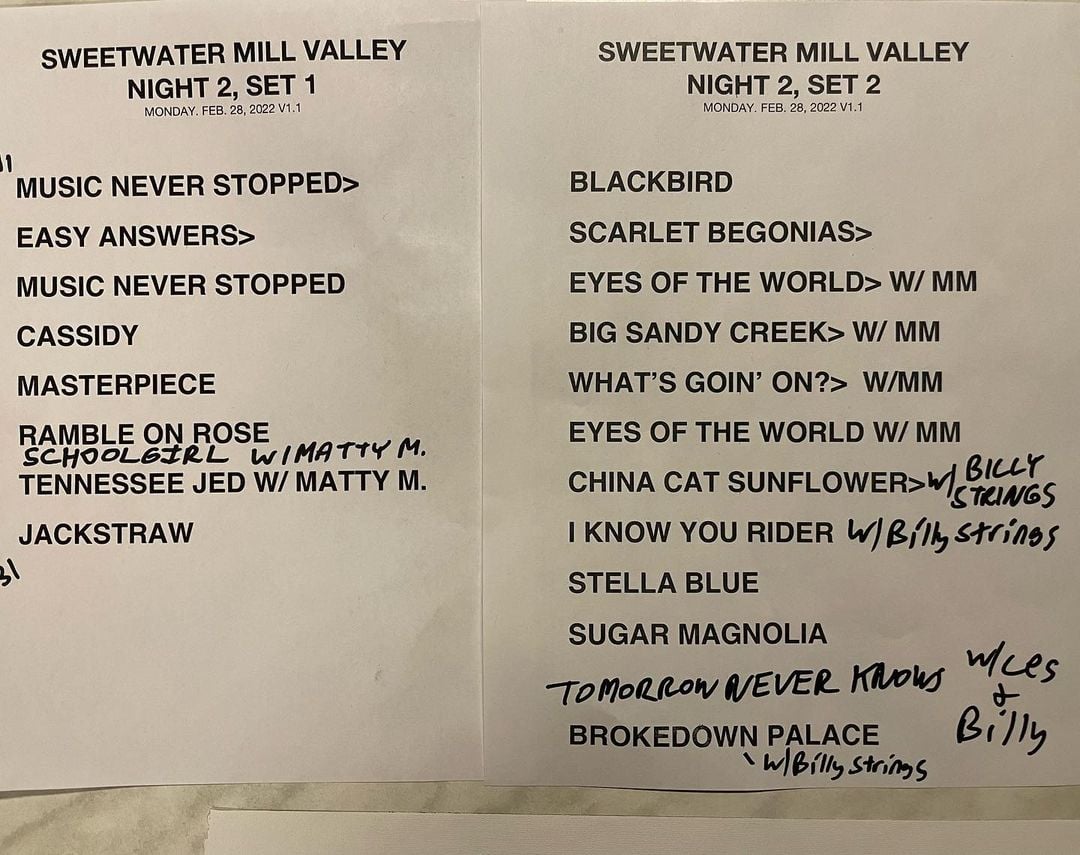 SWEETWATER MILL VALLEY
NIGHT 2, SET 1
MONDAY. FEB. 28, 2022 V1.1
MUSIC NEVER STOPPED>
EASY ANSWERS>
MUSIC NEVER STOPPED
CASSIDY
MASTERPIECE
RAMBLE ON ROSE
SCHOOLGIRL W/MATTY M.
TENNESSEE JED W/ MATTY M.
JACKSTRAW
SWEETWATER MILL VALLEY
NIGHT 2, SET 2
MONDAY. FEB. 28, 2022 V1.1
BLACKBIRD
SCARLET BEGONIAS>
EYES OF THE WORLD> W/ MM
BIG SANDY CREEK> W/ MM
WHAT'S GOIN' ON?> W/MM
EYES OF THE WORLD W/ MM
CHINA CAT SUNFLOWER> w/ BILLY STRINGS
I KNOW YOU RIDER W/Billy Strings
STELLA BLUE
SUGAR MAGNOLIA
TOMORROW NEVER KNOWS w/Les & Billy
BROKEDOWN PALACE
w/Billy Strings